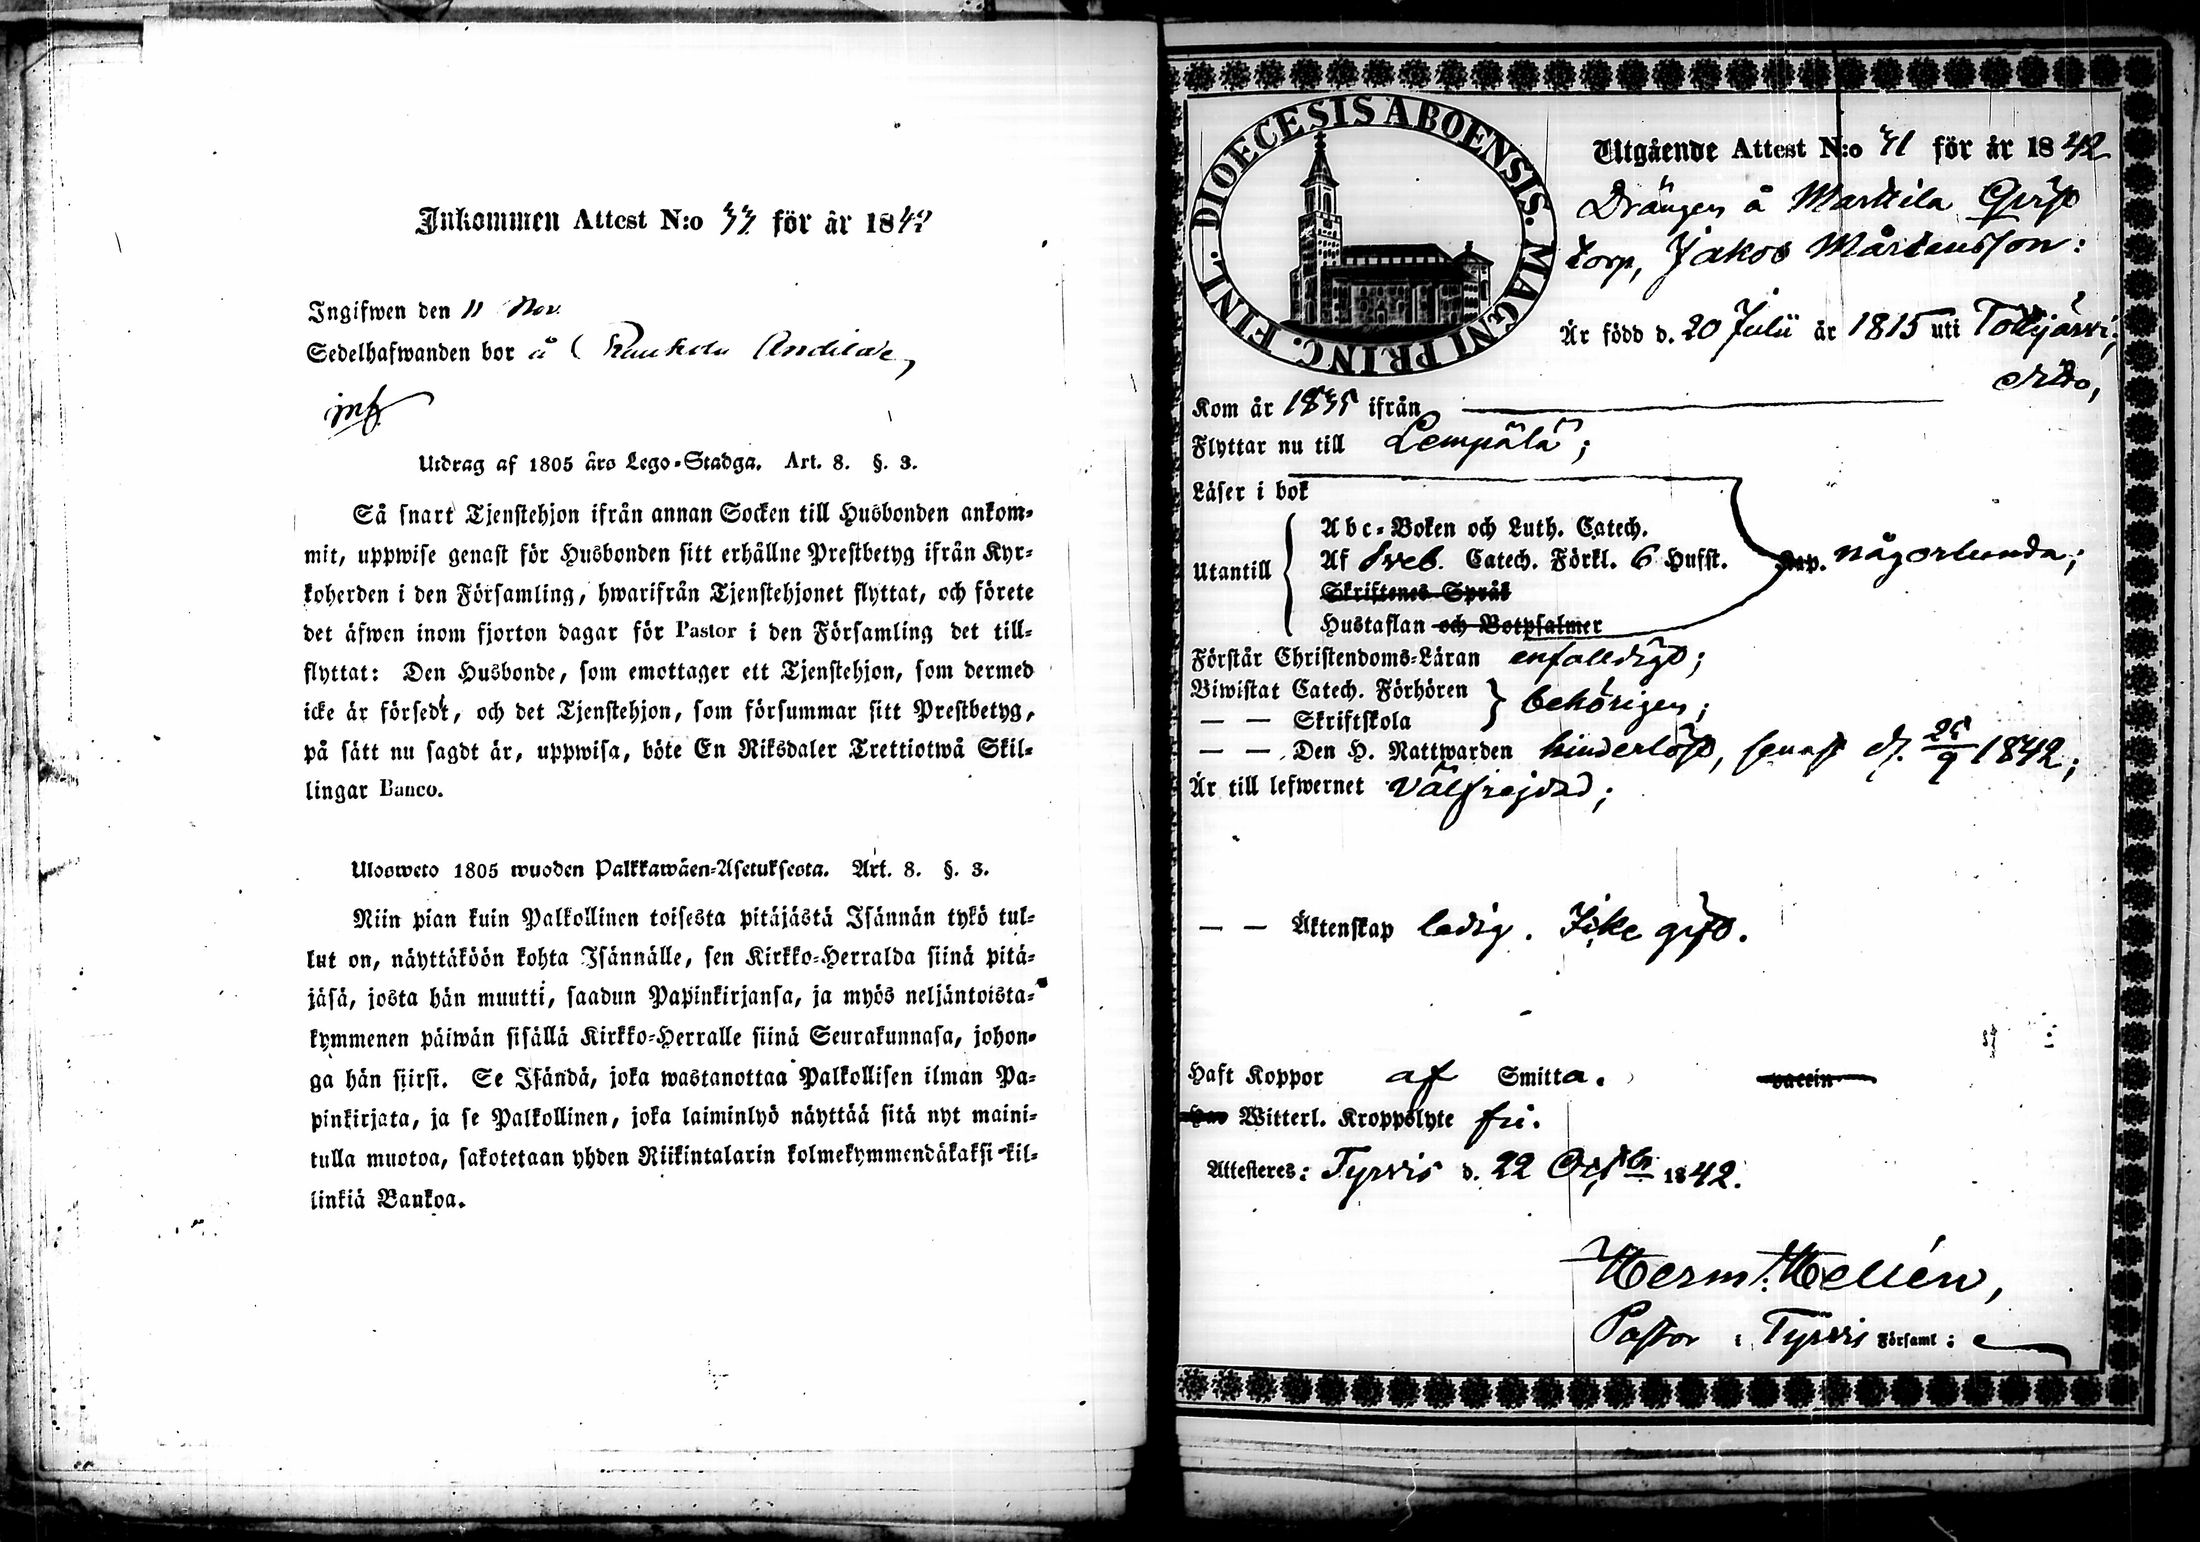 Inkommen Attest N:o 33 för år 1842
Ingifwen den 11 Nov.
Sedelhafwanden bor å
Utdrag af 1805 års Lego-Stadga. Art. 8. §. 3.
Så snart Tjenstehjon ifrån annan Socken till Husbonden ankom-
mit, uppwise genast för Husbonden sitt erhållne Prestbetyg ifrån Kyr-
koherden i den Församling, hwarifrån Tjenstehjonet flyttat, och förete
det äfwen inom fjorton dagar för Pastor i den Församling det till-
flyttat: Den Husbonde, som emottager ett Tjenstehjon, som dermed
icke är försedt, och det Tjenstehjon, som försummar sitt Prestbetyg,
på sätt nu sagdt är, uppwisa, böte En Riksdaler Trettiotwå Skil-
lingar Banco.
Ulosweto 1805 wuoden Palkkawäen-Asetuksesta. Art. 8. §. 3.
Niin pian kuin Palkollinen toisesta pitäjästä Isännän tykö tul-
lut on, näyttäköön kohta Isännälle, sen Kirkko-Herralda siinä pitä-
jäsä, josta hän muutti, saadun Papinkirjansa, ja myös neljäntoista-
kymmenen päiwän sisällä Kirkko-Herralle siinä Seurakunnasa, johon-
ga hän siirsi. Se Isändä, joka wastanottaa Palkollisen ilman Pa-
pinkirjata, ja se Palkollinen, joka laiminlyö näyttää sitä nyt maini-
tulla muotoa, sakotetaan yhden Riikintalarin kolmekymmendäkaksi kil-
linkiä Bankoa.
DIOECESIS ABOENSIS. MAGNI PRINC. FINL.
Utgående Attest N:o 31 för år 1842
Drängen å Markkila
torp, Jakob Mårtensson:
Är född d. 20 Julii år 1815 uti
Kom år 1835 ifrån
Flyttar nu till Lempälä;
Läser i bok
Abc-Boken och Luth. Catech.
Utantill Af Sveb. Catech. Förkl. 6 Hufst. någorlunda;
Skriftenes Språk
Hustaflan och Botpsalmer
Förstår Christendoms-Läran enfalldigt;
Biwistat Catech. Förhören
— — Skriftskola behörigen;
— — Den H. Nattwarden hinderlöst, senast d. 25/9 1842;
Är till lefwernet välfrejdad;
— — Äktenskap ledig. Icke gift.
Haft Koppor af Smitta. vaccin
Har Witterl. Kroppslyte fri.
Attesteres: Tyrvis d. 22 Octbr 1842.
Herm. Hellén,
Pastor i Tyrvis Församl: